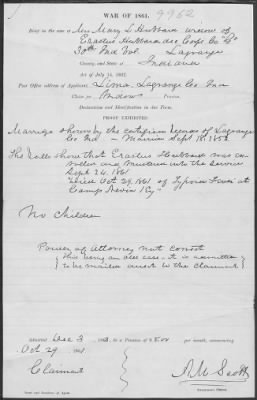 WAR OF 1861.
9962
Brief in the case of Mrs Mary L Hubbard widow of
Erastus Hubbard dec Corpl Co "G"
30th Ind Vol. Lagrange
County, and State of Indiana
Act of July 14, 1862.
Post Office address of Applicant, Lima Lagrange Co Ina
Claim for Widow's Pension.
Declaration and Identification in due Form.
PROOF EXHIBITED.
Marriage shown by the certified record of Lagrange
Co Ind - Married Sept 18, 1852
The rolls show that Erastus Hubbard was
enrolled and mustered into the service
Sept 24, 1861
"Died Oct 29, 1861 of Typhoid Fever at
Camp Nevin Ky"
No Children
Power of Attorney not correct
this being an old case - it is
to be mailed direct to the Claimant
Admitted Dec 3, 1863, to a Pension of $8.00 per month, commencing
Oct 29 1861
Claimant
Name and Residence of Agent.
Examining Clerk.